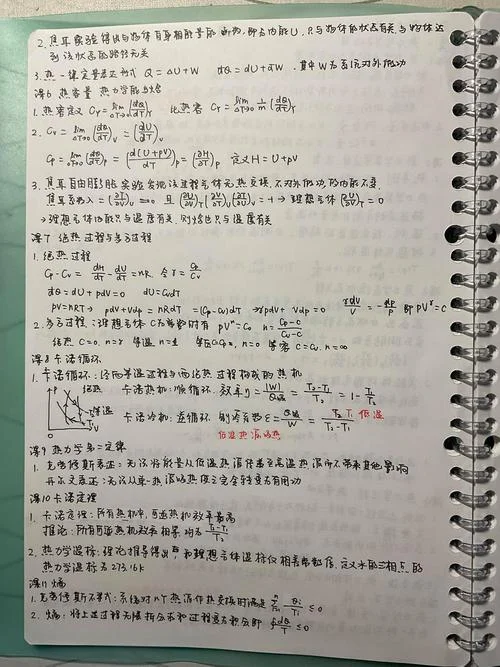 2. 焦耳实验得出与物体自身相关能量的函数, 即为内能U, 只与物体的状态有关, 与物体达
到该状态的路径无关
3. 热一律定量表达形式 Q = ΔU + W dQ = dU + dW. 其中W为系统对外做功
课6 热容量 热力学能与焓
1. 热容定义 Cγ = lim ΔT→0 (dQ/dT)γ 比热容 Cγ = lim ΔT→0 1/m (dQ/dT)γ
2. Cv = lim ΔT→0 (dQ/dT)v = (dU/dT)v
Cp = lim ΔT→0 (dQ/dT)p = (d(U+pV)/dT)p = (∂H/∂T)p 定义H = U+pV
3. 焦耳自由膨胀实验发现该过程气体无热交换, 不对外做功, 故内能不变.
焦耳系数λ = (∂T/∂V)u = 0 且 (∂U/∂V)T (∂V/∂T)u (∂T/∂U)v = -1 → 理想气体 (∂U/∂V)T = 0
→ 理想气体内能只与温度有关, 则焓也只与温度有关
课7 绝热过程与多方过程
1. 绝热过程
Cp - Cv = dH/dT - dU/dT = nR, 令γ = Cp/Cv
dQ = dU + pdV = 0 dU = CvdT
PV = nRT → pdV + Vdp = nRdT = (Cp-Cv)dT → γpdV + Vdp = 0 γdV/V = -dp/p 即 PV^γ = C
2. 多方过程: 理想气体 C为常数时有 pV^n = C₀ n = Cp-C/Cv-C
绝热 C=0, n=γ 等温 n=1 等压 C=Cp, n=0 等容 C=Cv, n=∞
课8 卡诺循环
1. 卡诺循环: 经两等温过程与两绝热过程构成的热机
P 绝热 等温 V
卡诺热机: 顺循环. 效率η = |W|/Q吸热 = T₂-T₁/T₂ = 1 - T₁/T₂
卡诺冷机: 逆循环. 制冷系数ε = Q吸热/W = T₁/T₂-T₁ 低温
低温热源吸热
课9 热力学第二定律
1. 克劳修斯表述: 无法将能量从低温热源传递至高温热源而不带来其他影响
开尔文表述: 无法从单一热源吸热使之完全转变为有用功
课10 卡诺定理
1. 卡诺定理: 所有热机中, 可逆热机效率最高
推论: 所有可逆热机效率相等 均为 T₂-T₁/T₂
2. 热力学温标: 理论推导得出 和理想气体温标仅相差常数倍, 定义水的三相点的
热力学温标为273.16K
课11 熵
1. 克劳修斯不等式: 系统对n个热源作热交换时满足 Σ Qi/Ti ≤ 0
2. 熵: 将上述过程无限拆分求和过程变为积分即 ∮dQ/T ≤ 0